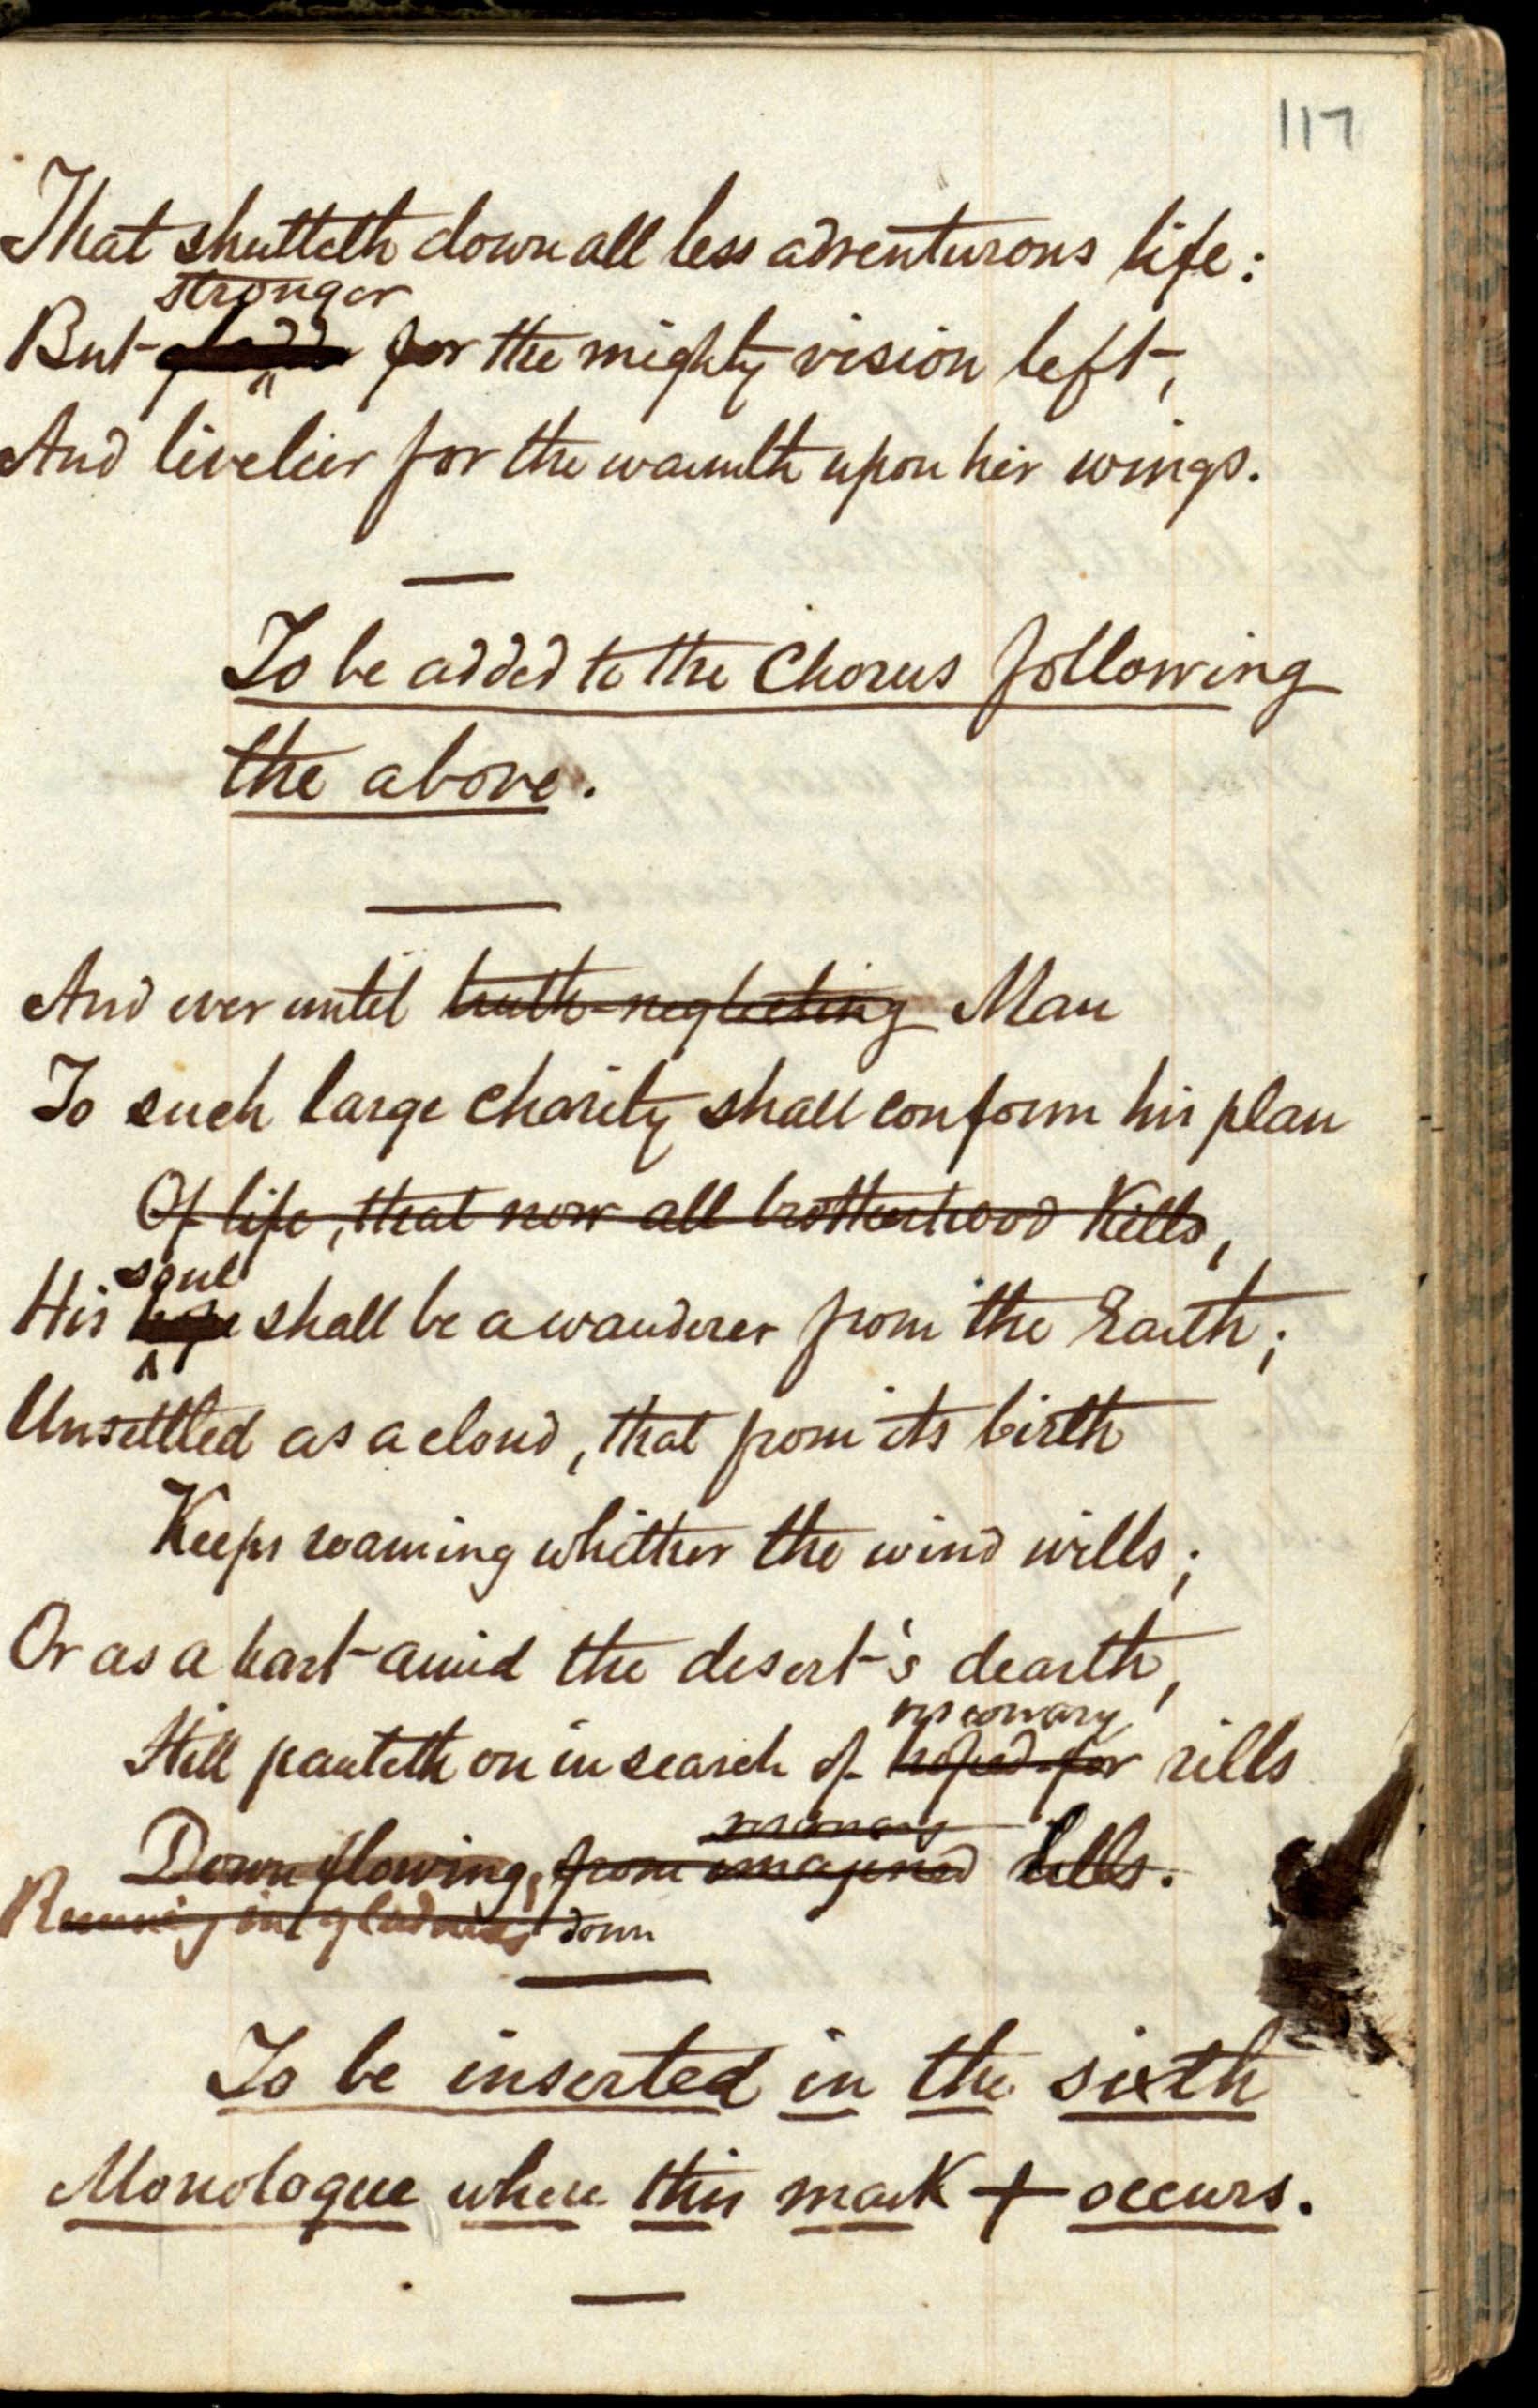 117
That shutteth down all less adventurous life:
stronger
But for the mighty vision left,
And livelier for the warmth upon her wings.
To be added to the Chorus following
the above.
And ever until truth-neglecting Man
To such large charity shall conform his plan
Of life, that now all brotherhood kills,
soul
His hope shall be a wanderer from the Earth;
Unsettled as a cloud, that from its birth
Keeps roaming whither the wind wills;
Or as a hart amid the desert's dearth,
visionary
Still panteth on in search of hoped-for rills
visionary
Down flowing, from imagined hills.
Running in gladness down
To be inserted in the sixth
Monologue where this mark + occurs.